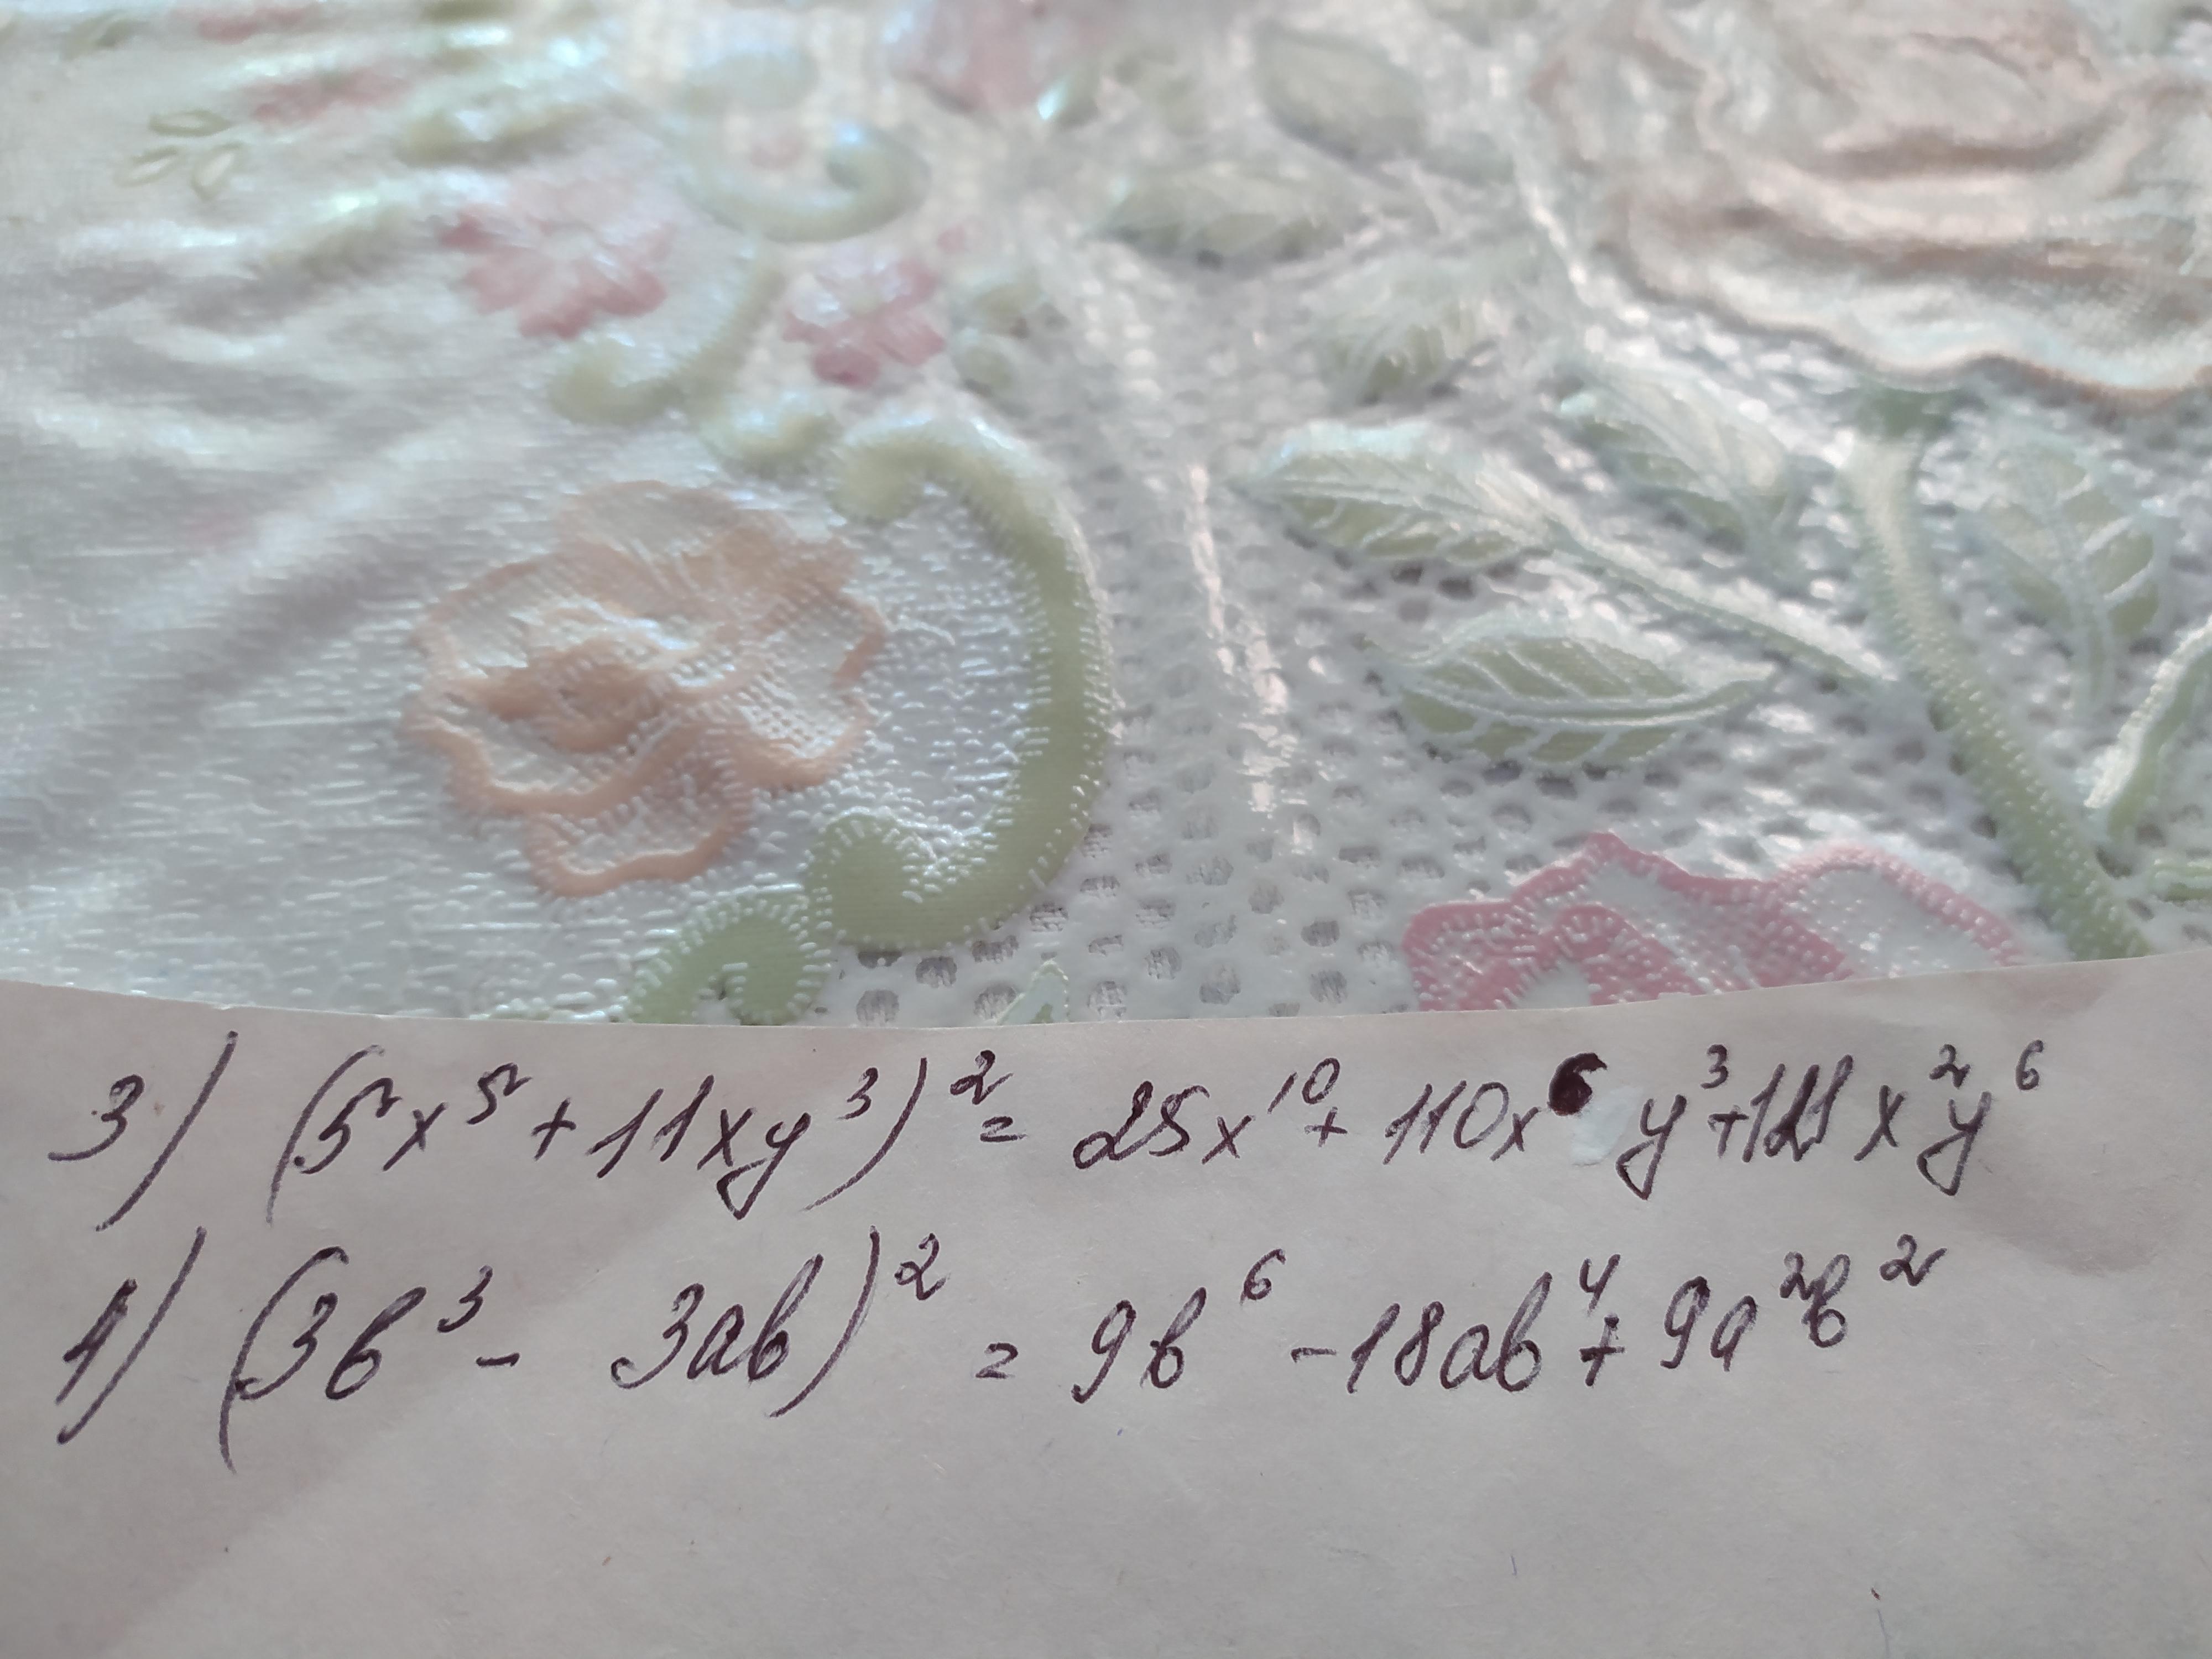 3) (5x⁵ + 11xy³)² = 25x¹⁰ + 110x⁶ y³ + 121 x²y⁶
1) (3b³ - 3ab)² = 9b⁶ - 18ab⁴ + 9a²b²